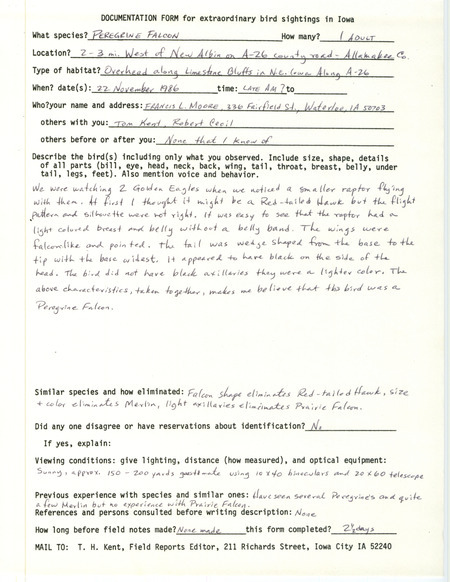 DOCUMENTATION FORM for extraordinary bird sightings in Iowa
What species? PEREGRINE FALCON How many? 1 ADULT
Location? 2-3 mi. West of New Albin on A-26 county road - Allamakee Co.
Type of habitat? Overhead along Limestone Bluffs in N.E. Iowa Along A-26
When? date(s): 22 November 1986 time: LATE AM ? to
Who? your name and address: FRANCIS L. MOORE, 336 Fairfield St., Waterloo, IA 50703
others with you: Tom Kent, Robert Cecil
others before or after you: None that I know of
Describe the bird(s) including only what you observed. Include size, shape, details
of all parts (bill, eye, head, neck, back, wing, tail, throat, breast, belly, under
tail, legs, feet). Also mention voice and behavior.
We were watching 2 Golden Eagles when we noticed a smaller raptor flying
with them. At first I thought it might be a Red-tailed Hawk but the flight
pattern and silhouette were not right. It was easy to see that the raptor had a
light colored breast and belly without a belly band. The wings were
falconlike and pointed. The tail was wedge shaped from the base to the
tip with the base widest. It appeared to have black on the side of the
head. The bird did not have black axillaries they were a lighter color. The
above characteristics, taken together, makes me believe that this bird was a
Peregrine Falcon.
Similar species and how eliminated: Falcon shape eliminates Red-tailed Hawk, size
+ color eliminates Merlin, light axillaries eliminates Prairie Falcon.
Did any one disagree or have reservations about identification? No
If yes, explain:
Viewing conditions: give lighting, distance (how measured), and optical equipment:
Sunny, approx. 150-200 yards guestimate using 10x40 binoculars and 20x60 telescope
Previous experience with species and similar ones: Have seen several Peregrine's and quite
a few Merlin but no experience with Prairie Falcon.
References and persons consulted before writing description: None
How long before field notes made? None made this form completed? 2 1/2 days
MAIL TO: T. H. Kent, Field Reports Editor, 211 Richards Street, Iowa City IA 52240